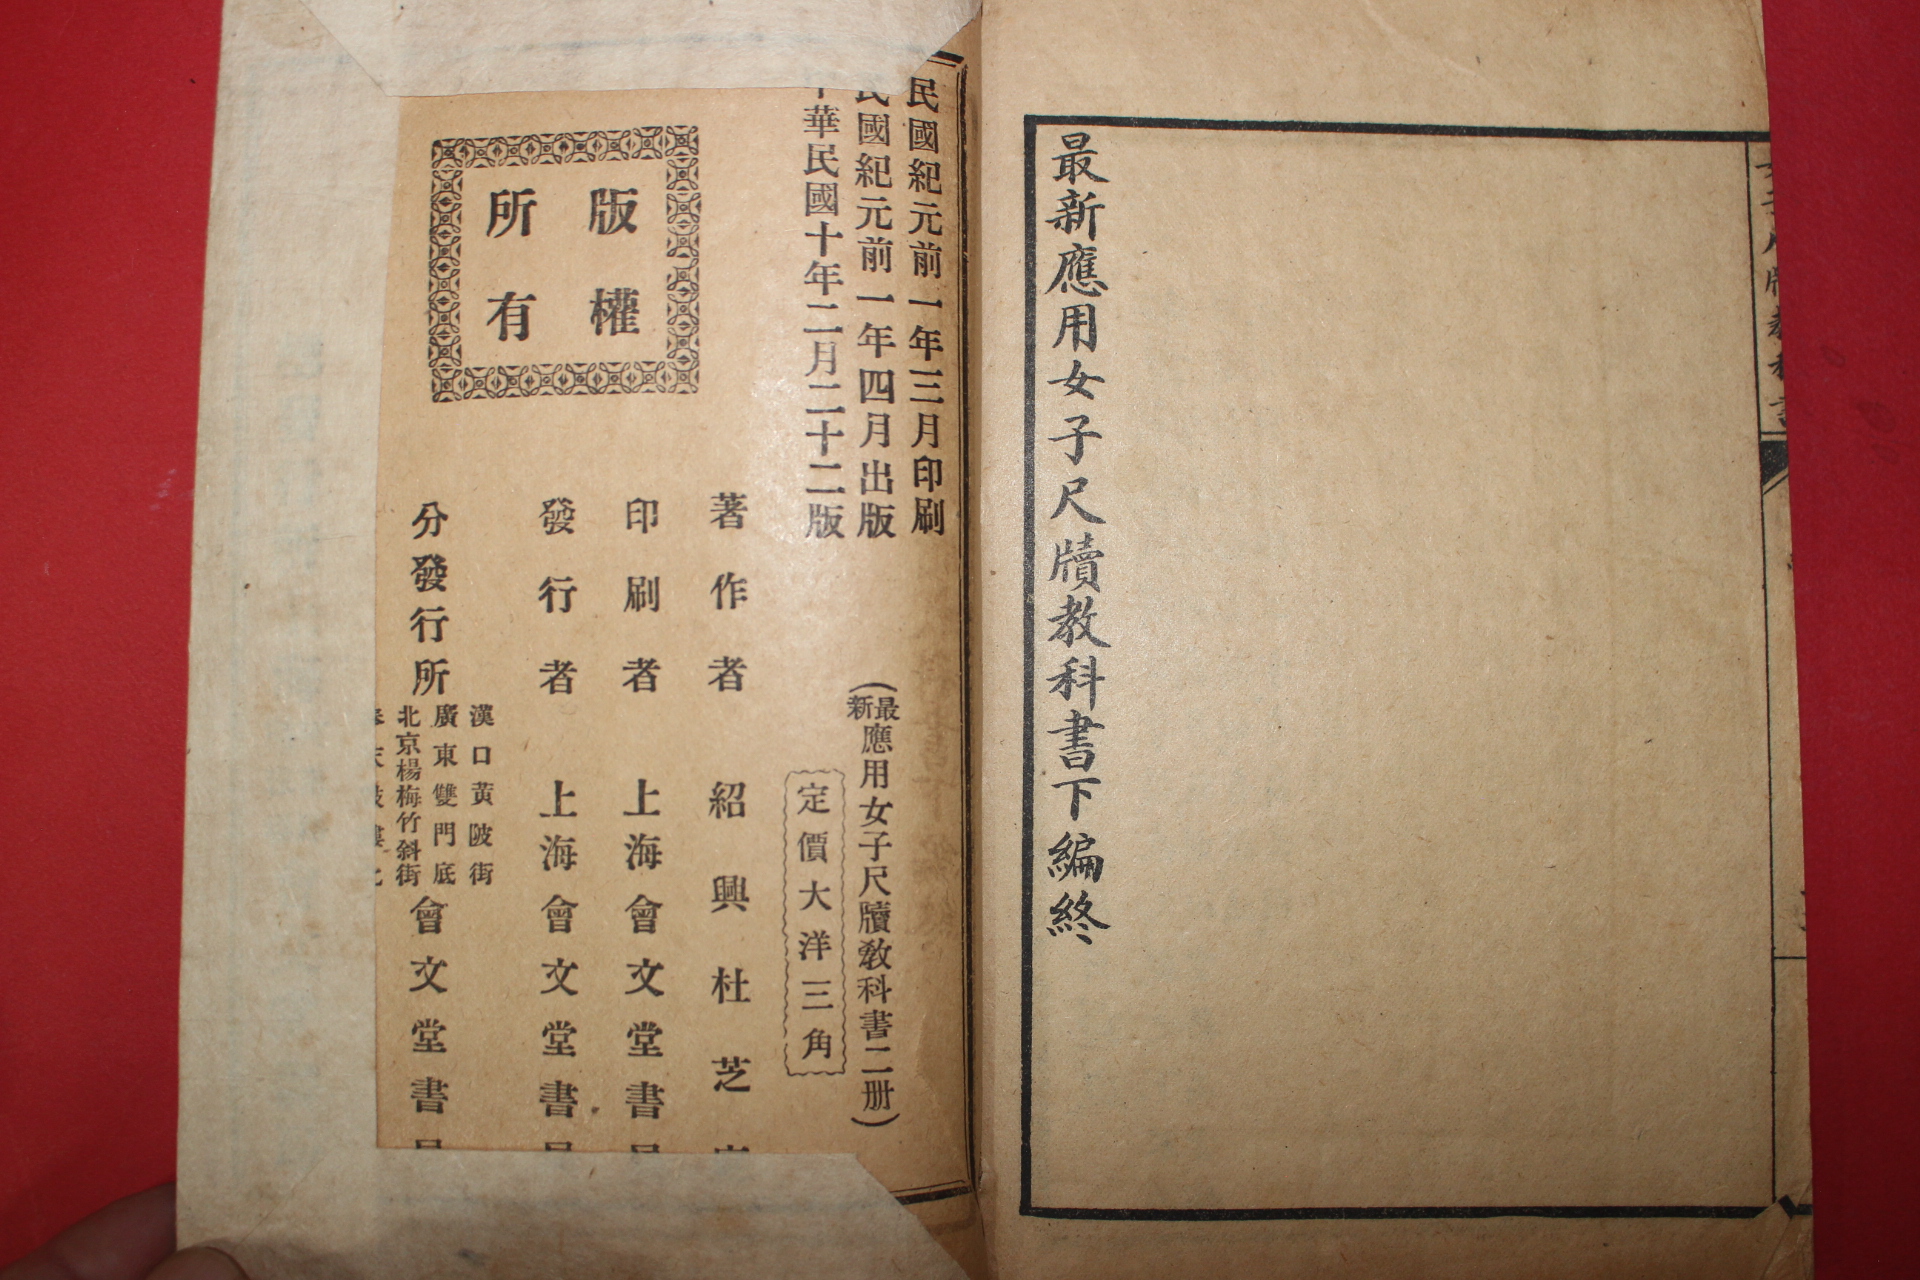 最新應用女子尺牘教科書下編終
民國紀元前一年三月印刷
民國紀元前一年四月出版
華民國十年二月二十二版
(最新應用女子尺牘敎科書二册)
定價大洋三角
著作者 紹興杜芝
印刷者 上海會文堂書
發行者 上海會文堂書
分發行所
漢口黃陂街
廣東雙門底
北京楊梅竹斜街
會文堂書
版權
所有